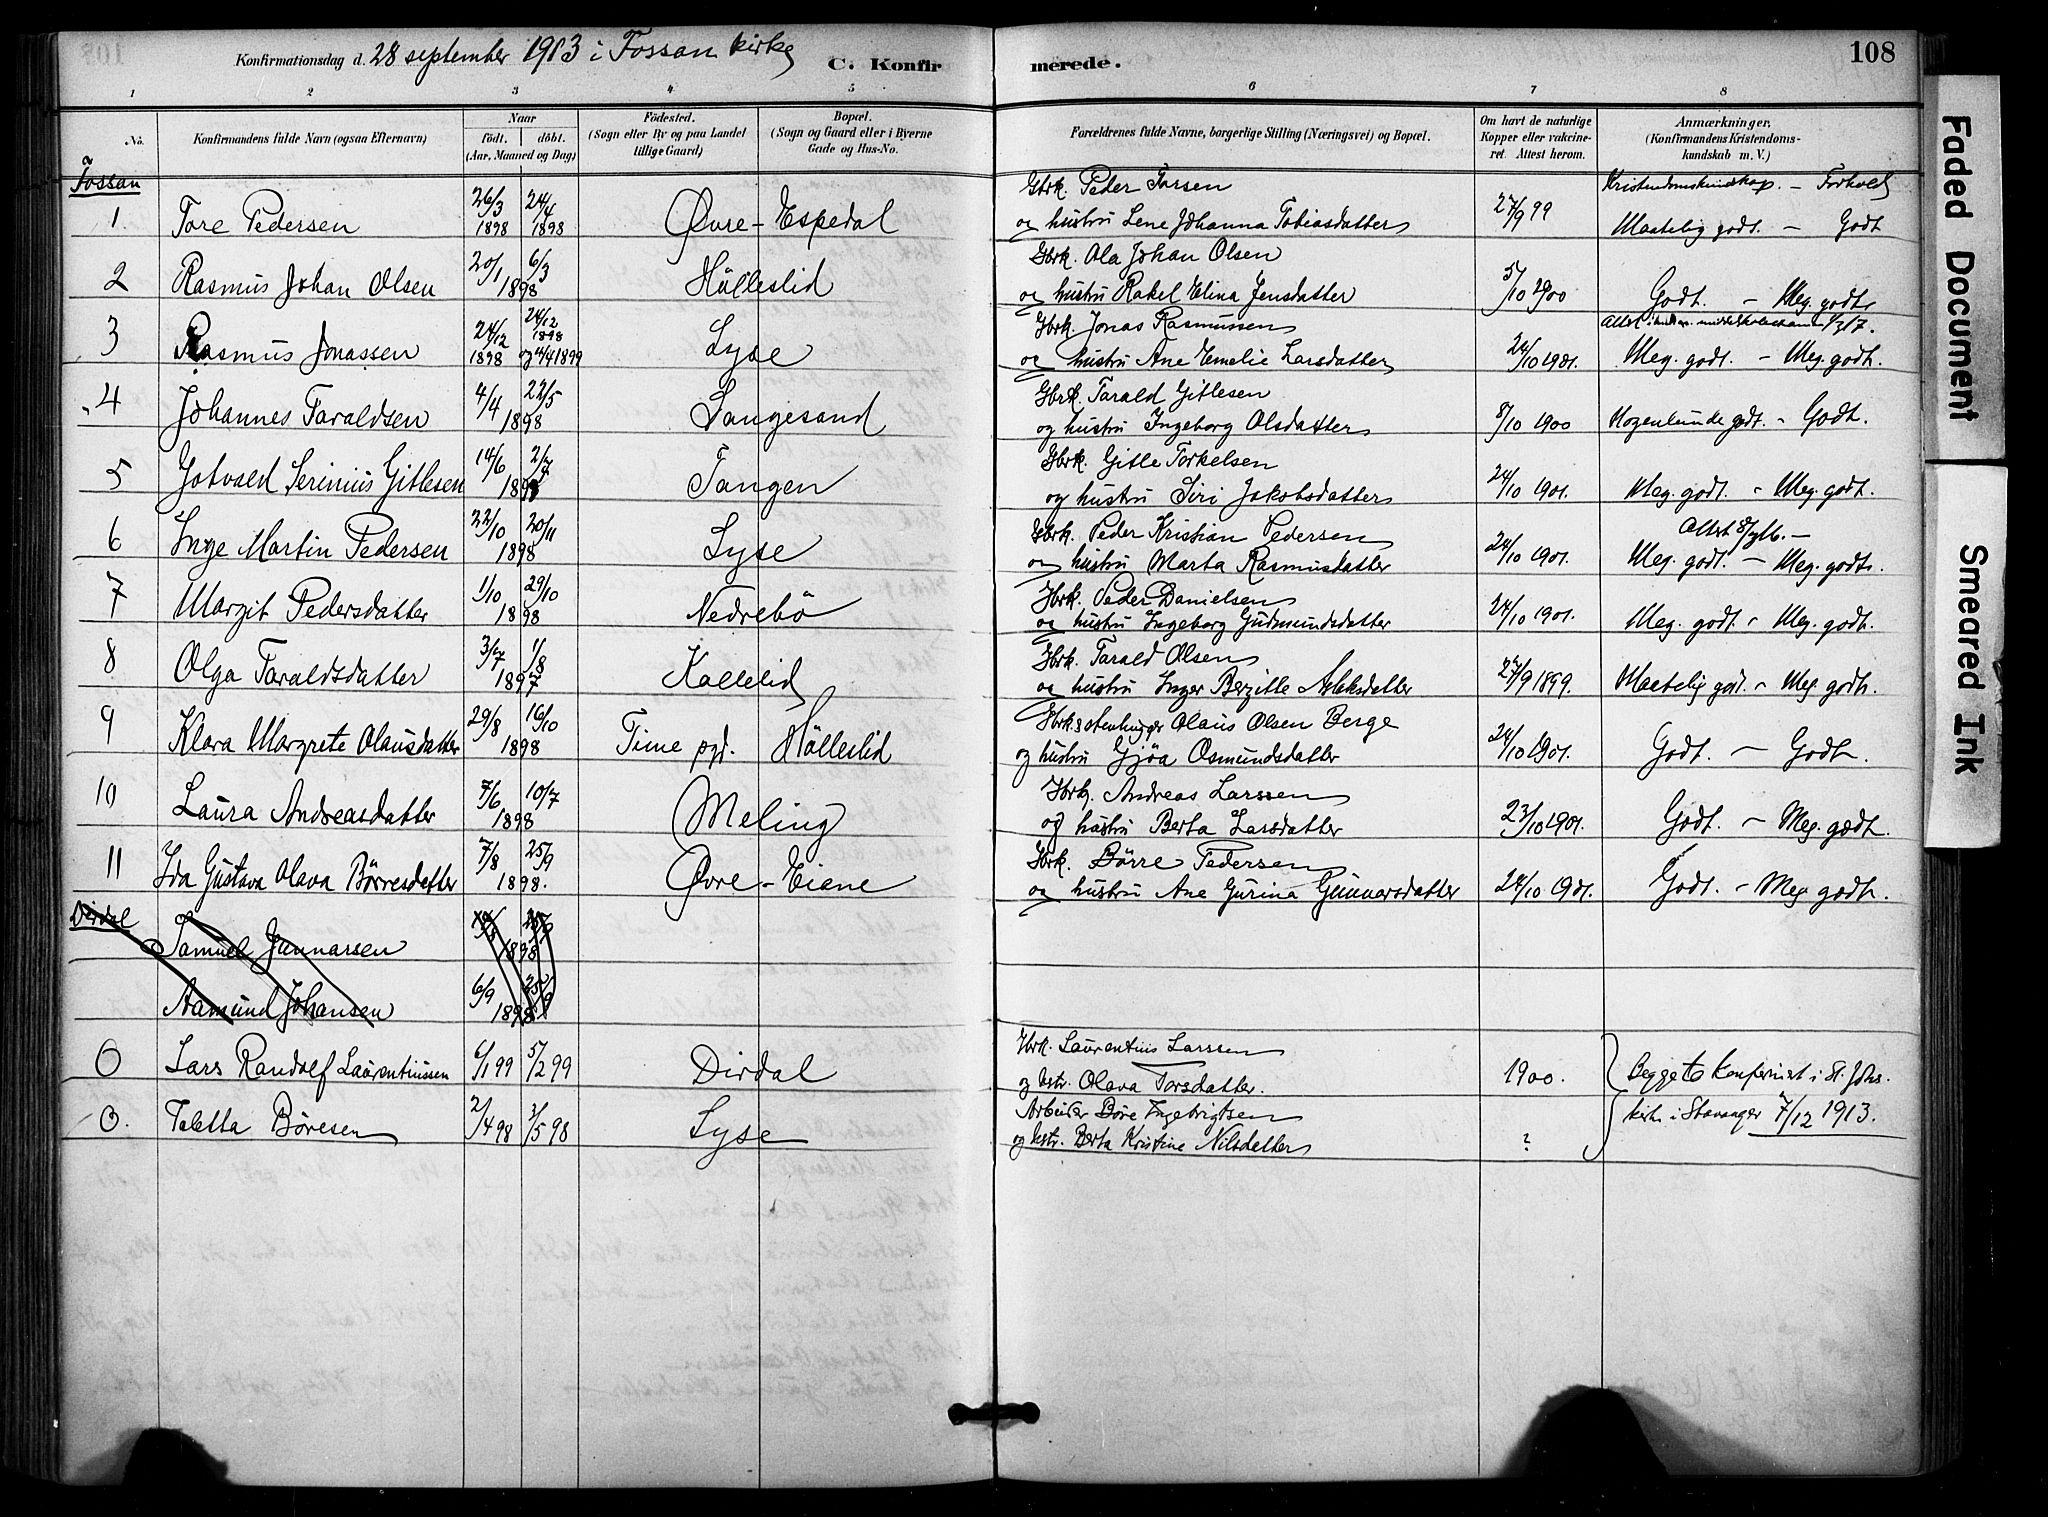 Konfirmationsdag d. 28 september 1913 i Fossan kirke
C. Konfirmerede.
108
1 2 3 4 5 6 7 8
No.
Konfirmandens fulde Navn (ogsaa Efternavn)
Naar
født. døbt.
(Aar, Maaned og Dag)
Fødested.
(Sogn eller By og paa Landet tillige Gaard)
Bopæl.
(Sogn og Gaard eller i Byerne Gade og Hus-No.
Forældrenes fulde Navne, borgerlige Stilling (Næringsvei) og Bopæl.
Om havt de naturlige Kopper eller vakcineret. Attest herom.
Anmærkninger.
(Konfirmandens Kristendomskundskab m. V.)
Fossan
Kristendomskundskap. – Forhold
1 Tore Pedersen 26/3 1898 24/4 1898 Øvre-Espedal Gbrk. Peder Torsen
og hustru Lene Johanna Tobiasdatter 27/9 99 Maatelig godt. – Godt
2 Rasmus Johan Olsen 20/1 6/3 1898 Hölleslid Gbrk. Ola Johan Olsen
og hustru Rakel Elina Jensdatter 5/10 1900 Godt. – Meg. godt.
3 Rasmus Jonassen 24/12 1898 24/12 1898 og 4/4 1899 Lyse Gbrk. Jonas Rasmussen
og hustru Ane Emelie Larsdatter 24/10 1901. Meg. godt. – Meg. godt.
4 Johannes Taraldsen 4/4 22/5 1898 Sangesand Gbrk. Tarald Gitlesen
og hustru Ingeborg Olsdatter 8/10 1900 Nogenlunde godt. – Godt.
5 Jotvald Serinius Gitlesen 14/6 2/7 1898 Tangen Gbrk. Gitle Torkelsen
og hustru Siri Jakobsdatter 24/10 1901. Meg. godt. – Meg. godt.
6 Inge Martin Pedersen 22/10 20/11 1898 Lyse Gbrk. Peder Kristian Pedersen
og hustru Marta Rasmusdatter 24/10 1901. Meg. godt. – Meg. godt.
7 Margit Pedersdatter 1/10 29/10 1898 Nedrebö Gbrk. Peder Danielsen
og hustru Ingeborg Gudmundsdatter 24/10 1901. Meg. godt. – Meg. godt.
8 Olga Taraldsdatter 3/7 1/8 1897 Kallelid Gbrk. Tarald Olsen
og hustru Inger Bergitte Aslaksdatter 27/9 1899. Maatelig godt. – Meg. godt.
9 Klara Margrete Olausdatter 29/8 16/10 1898 Time pgd. Hölleslid Olaus Olsen Berge
og hustru Gjöa Osmundsdatter 24/10 1901. Godt – Godt.
10 Laura Andreasdatter 7/6 10/7 1898 Meling Gbrk. Andreas Larssen
og hustru Berta Larsdatter 23/10 1901. Godt. – Meg. godt.
11 Ida Gustava Olava Börresdatter 7/8 25/9 1898. Øvre-Eiane Gbrk. Börre Pedersen
og hustru Ane Gurina Gunnarsdatter 24/10 1901. Godt. – Meg godt.
Dirdal
Samuel Gunnarsen 1898
Aamund Johansen 6/9 25/9 1898
0 Lars Randolf Laurentiussen 6/1 99 5/2 99 Dirdal Gbrk. Laurentius Larssen
og hstr. Olava Torsdatter. 1900. Begge to konfermert i St. Johs.
0. Taletta Böresen 2/4 98 1/5 98 Lyse Arbeider Böre Ingebrigtsen
kirke i Stavanger 7/12 1913.
og hstr. Berta Kristine Nilsdatter ?
Faded Document
Smeared Ink